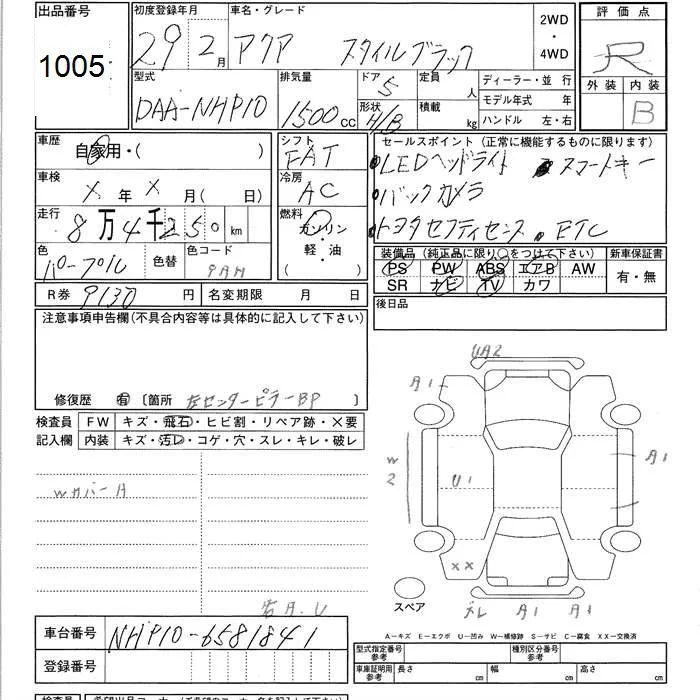 出品番号 初度登録年月 車名・グレード 2WD ・ 4WD 評価点
1005 29年 2月 アクア スタイルブラック R
型式 排気量 ドア 5 定員 人 ディーラー・並 行 外装 内装
DAA-NHP10 1500cc 形状 H/B 積載 kg モデル年式 年 B
ハンドル 左・右
車歴 自家用・( ) シフト FAT セールスポイント (正常に機能するものに限ります)
車検 X 年 X 月( 日) 冷房 AC ・LEDヘッドライト ・スマートキー
・バックカメラ
走行 8万4千250km 燃料 ガソリン・軽・油 ・トヨタセフティセンス ・ETC
色 パープル 色替 色コード 9AH 装備品 (純正品に限り○をつけて下さい) 新車保証書
PS PW ABS エアB AW 有・無
SR ナビ TV カワ
R券 9130 円 名変期限 月 日 後日品
注意事項申告欄(不具合内容等は具体的に記入して下さい)
修復歴 有 〔箇所 左センターピラーBP 〕
検査員記入欄 FW キズ・飛石・ヒビ割・リペア跡・×要
内装 キズ・汚レ・コゲ・穴・スレ・キレ・破レ
UA2
A1
W2 U1 A1
Wカバー A
XX
A1 A1
スペア
A.U
A-キズ E-エクボ U-凹み W-補修跡 S-サビ C-腐食 XX-交換済
車台番号 NHP10-6581841
登録番号
型式指定番号 参考 種別区分番号 参考
車庫証明用 参考 長さ cm 幅 cm 高さ cm